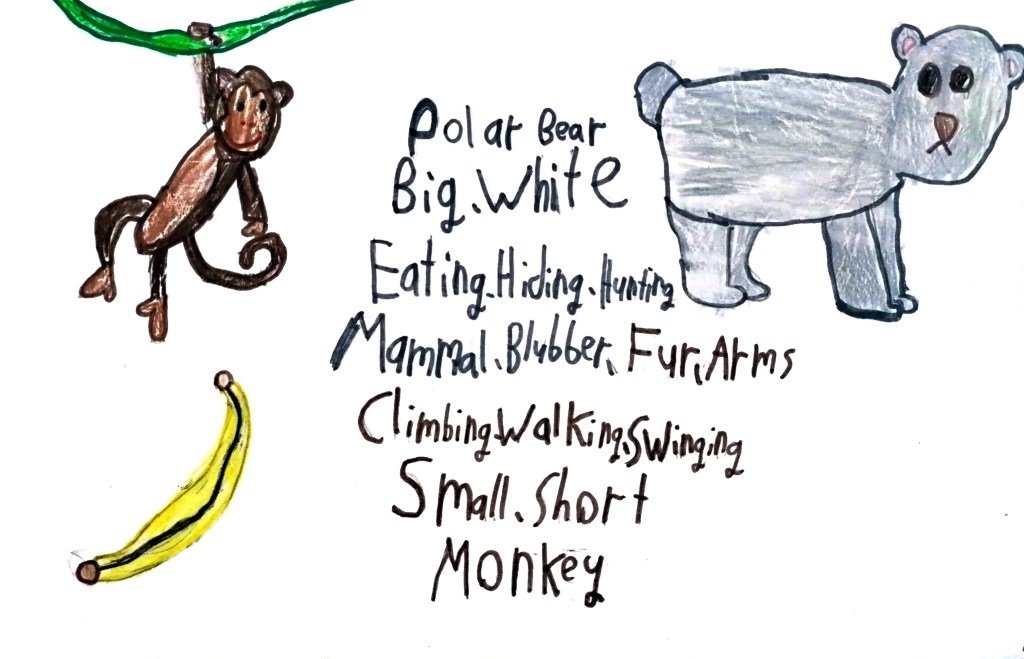 Polar Bear
Big.White
Eating.Hiding.Hunting
Mammal.Blubber.Fur.Arms
Climbing.Walking.Swinging
Small.Short
Monkey